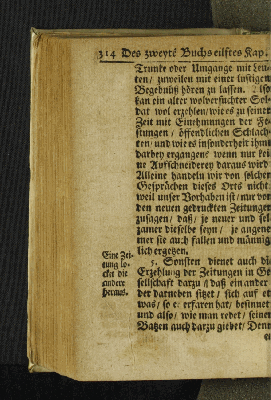 314 Des zweyte Buchs eilftes Kap.
Trunke oder Umgange mit Leu-
ten/ zuweilen mit einer lustigen
Begebnüß hören zu lassen. Also
kan ein alter wolversuchter Sol-
dat wol erzehlen/ wie es zu seiner
Zeit mit Einnehmungen der Fe-
stungen/ öffendlichen Schlach-
ten/ und wie es insonderheit ihm
darbey ergangen/ wenn nur kei-
ne Aufschneiderey daraus wird
Alleine handeln wir von solchen
Gesprächen dieses Orts nicht/
weil unser Vorhaben ist/ nur von
den neuen gedruckten Zeitungen
zusagen/ daß/ je neuer und sel-
zamer dieselbe seyn/ je angene-
mer sie auch fallen und männig-
lich ergetzen.
Eine Zei-
tung lo-
cket die
andere
heraus.
5. Sonsten dienet auch die
Erzehlung der Zeitungen in Ge-
sellschaft darzu/ daß ein ander
der darneben sitzet/ sich auf et-
was/ so er erfaren hat/ besinnet
und also/ wie man redet/ seinen
Batzen auch darzu giebet/ Denn